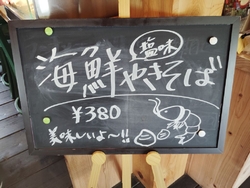 塩味
海鮮やきそば
¥380
美味しいよ〜!!